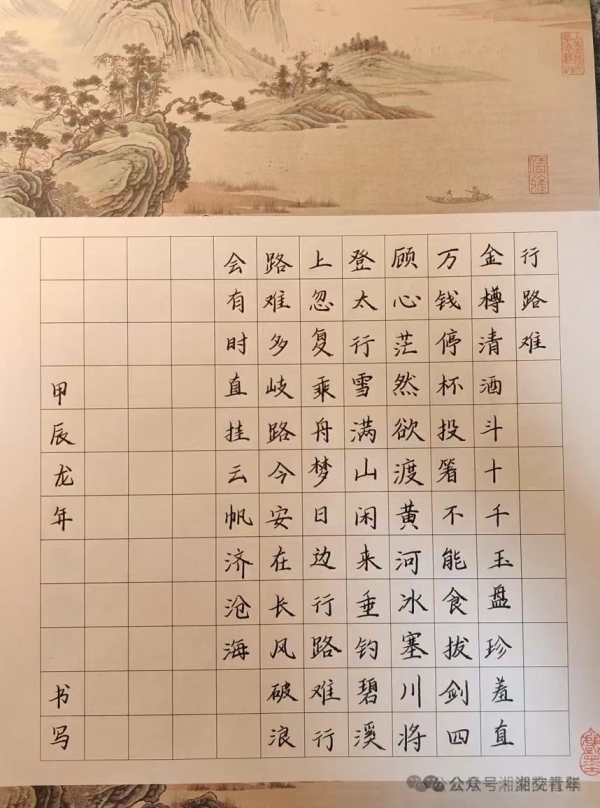 行路难
金樽清酒斗十千玉盘珍羞直
万钱停杯投箸不能食拔剑四
顾心茫然欲渡黄河冰塞川将
登太行雪满山闲来垂钓碧溪
上忽复乘舟梦日边行路难行
路难多岐路今安在长风破浪
会有时直挂云帆济沧海
甲辰龙年 书写
公众号